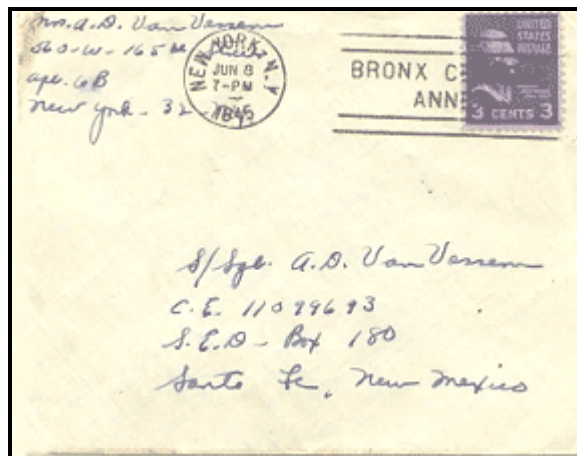 Mrs. A. D. Van Vessem
560-W-165th
apt. 6B
New York-32
NEW YORK, N.Y
JUN 8
7-PM
BRONX C
ANN
UNITED
STATES
POSTAGE
3 CENTS 3
S/Sgt. A.D. Van Vessem
C.E. 11099693
S.E.D - Box 180
Santa Fe, New Mexico